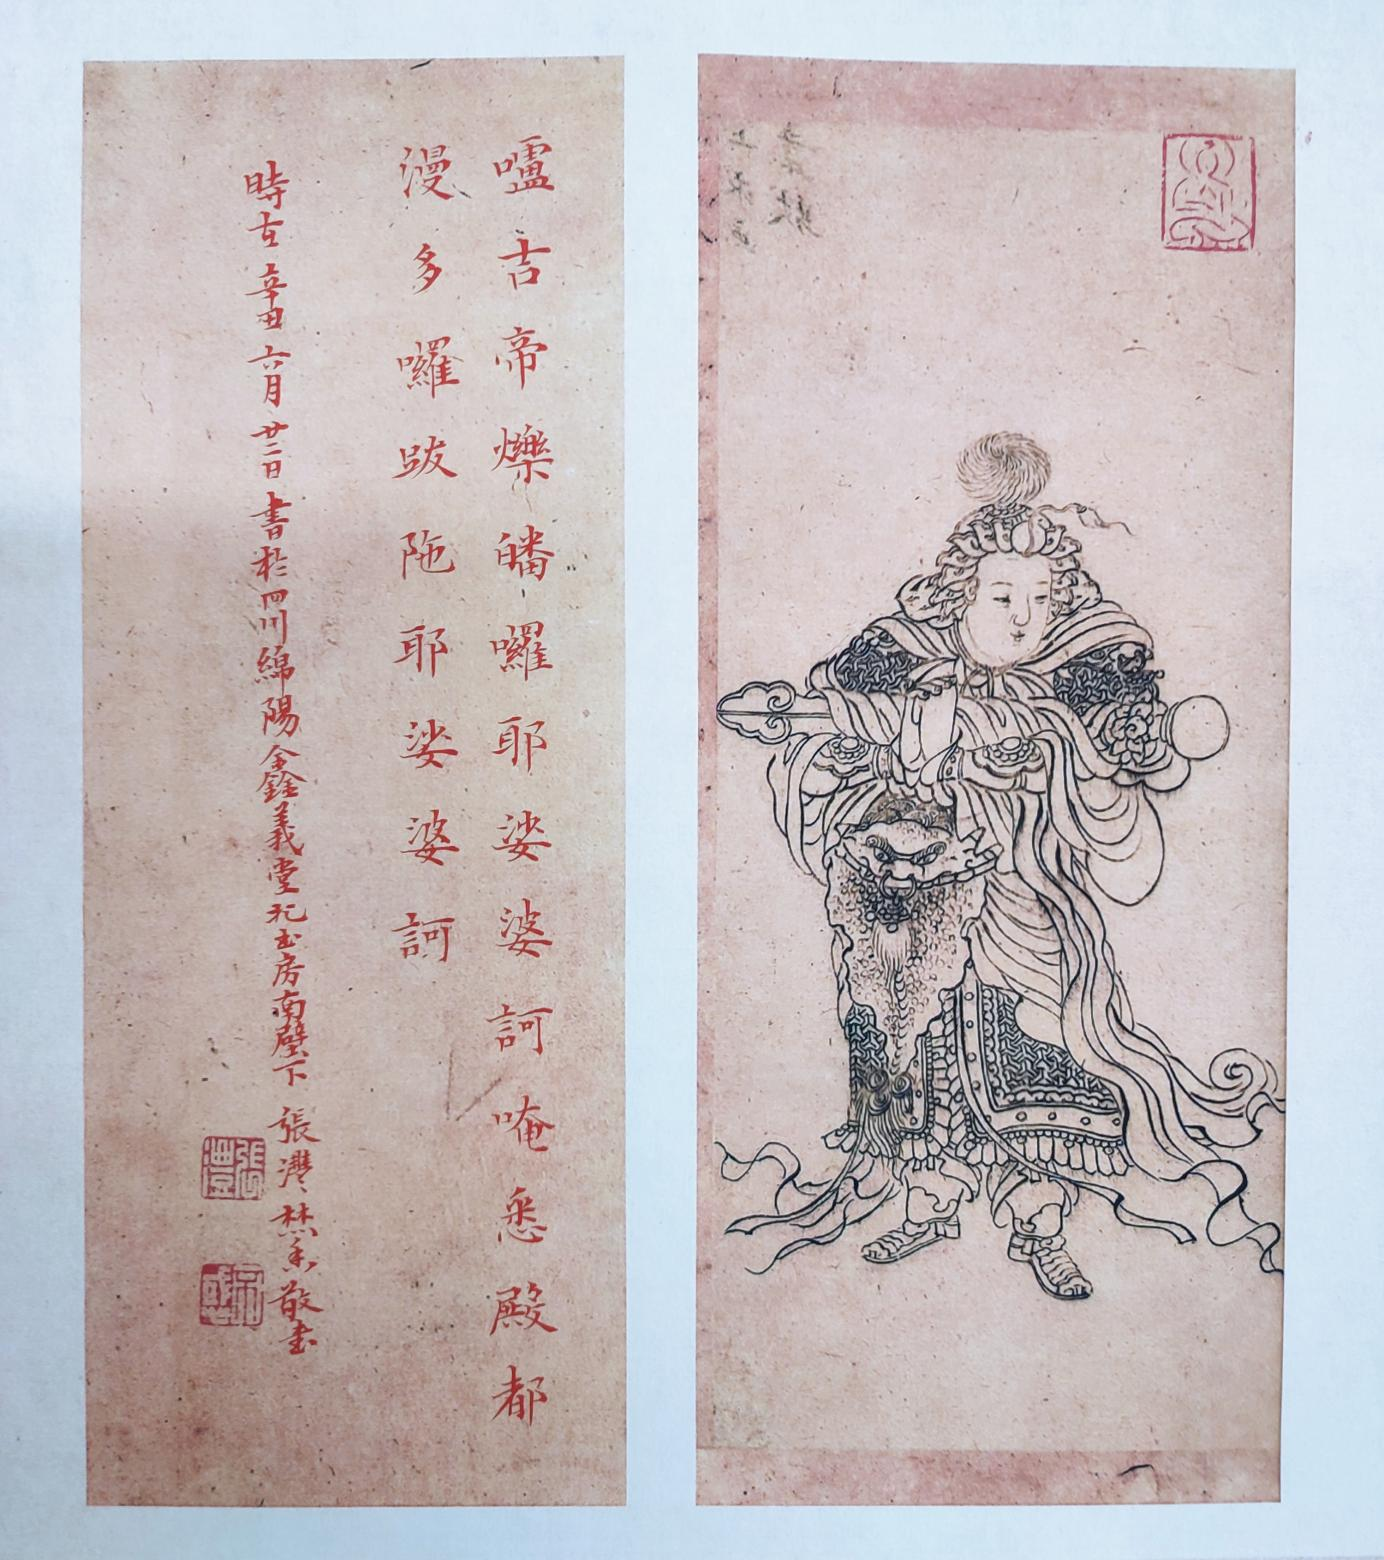 嚧吉帝爍皤囉耶娑婆訶唵悉殿都
漫多囉跋陁耶娑婆訶
時在辛丑六月廿二日書於四川綿陽金鑫義堂 書房南壁下 張灃 敬書